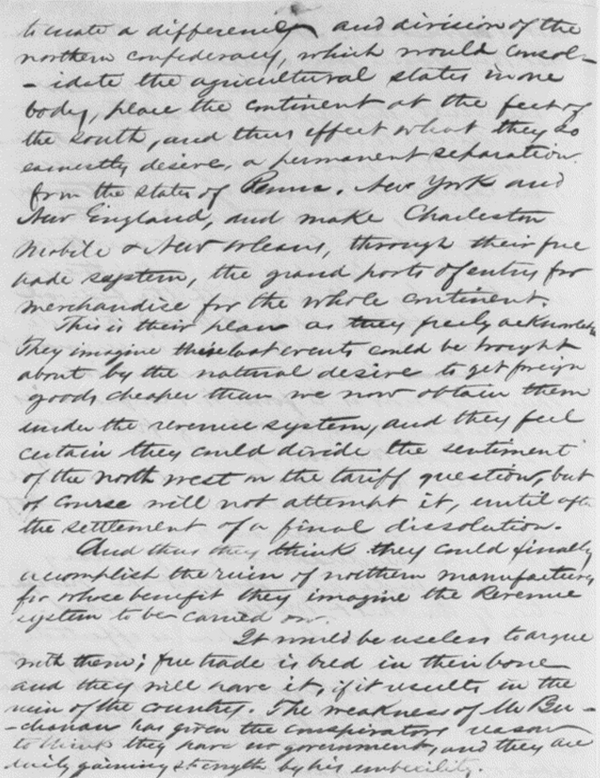 to create a difference and division of the
northern confederacy, which would consol-
- idate the agricultural states in one
body, place the continent at the feet of
the South, and thus effect what they so
earnestly desire, a permanent separation
from the states of Penna. New York and
New England, and make Charleston
Mobile & New Orleans, through their free
trade system, the grand ports of entry for
merchandise for the whole continent.
This is their plan as they freely acknowledge
They imagine these last events could be brought
about by the natural desire to get foreign
goods cheaper than we now obtain them
under the revenue system, and they feel
certain they could divide the sentiment
of the north west on the tariff question, but
of course will not attempt it, until after
the settlement of a final dissolution.
And thus they think they could finally
accomplish the ruin of northern manufacturers,
for whose benefit they imagine the Revenue
system to be carried on.
It would be useless to argue
with them; free trade is bred in their bone
and they will have it, if it results in the
ruin of the country. The weakness of Mr Bu-
-chanan has given the conspirators reason
to think they have no government, and they are
daily gaining strength by his imbecility.